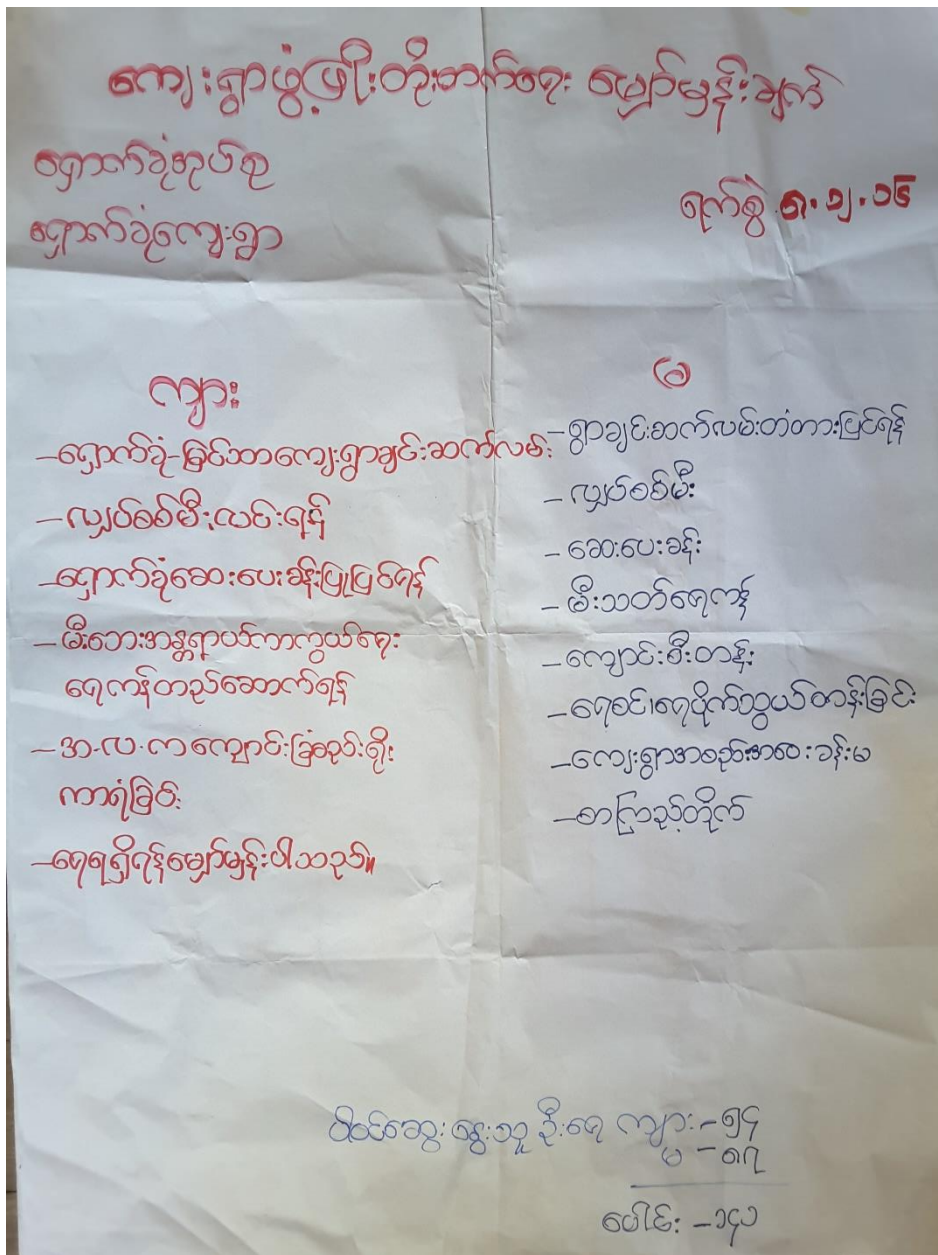 ကျေးရွာဖွံ့ဖြိုးတိုးတက်ရေး မျှော်မှန်းချက်
ရှောက်ခုံအုပ်စု
ရှောက်ခုံကျေးရွာ
ရက်စွဲ ၈.၁၂.၁၆
ကျား
-ရှောက်ခုံ-မြင်သာကျေးရွာချင်းဆက်လမ်း
-လျှပ်စစ်မီးလင်းရန်
-ရှောက်ခုံဆေးပေးခန်းပြုပြင်ရန်
-မီးဘေးအန္တရာယ်ကာကွယ်ရေး
ရေကန်တည်ဆောက်ရန်
-အ.လ.ကကျောင်းခြံစည်းရိုး
ကာရံခြင်း
-ရေရရှိရန်မျှော်မှန်းပါသည်။
မ
-ရွာချင်းဆက်လမ်းတံတားပြင်ရန်
-လျှပ်စစ်မီး
-ဆေးပေးခန်း
-မီးသတ်ရေကန်
-ကျောင်းစီးတန်း
-ရေစင်၊ရေပိုက်သွယ်တန်းခြင်း
-ကျေးရွာအစည်းအဝေးခန်းမ
-စာကြည့်တိုက်
ပါဝင်ဆွေးနွေးသူဦးရေ ကျား-၅၄
မ-၈၇
ပေါင်း-၁၄၁